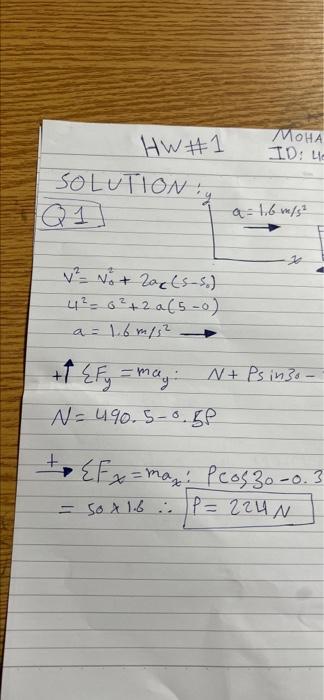 HW#1
MOHA
ID: 4
SOLUTION:
y
Q1
a = 1.6 m/s²
x
V² = V₀² + 2ac(s-s₀)
4² = 0² + 2a(5-0)
a = 1.6 m/s² →
+↑ ΣFy = may: N + Psin30 -
N = 490.5 - 0.5P
+→ ΣFx = max: Pcos30 - 0.3
= 50 x 1.6 ∴ P = 224 N